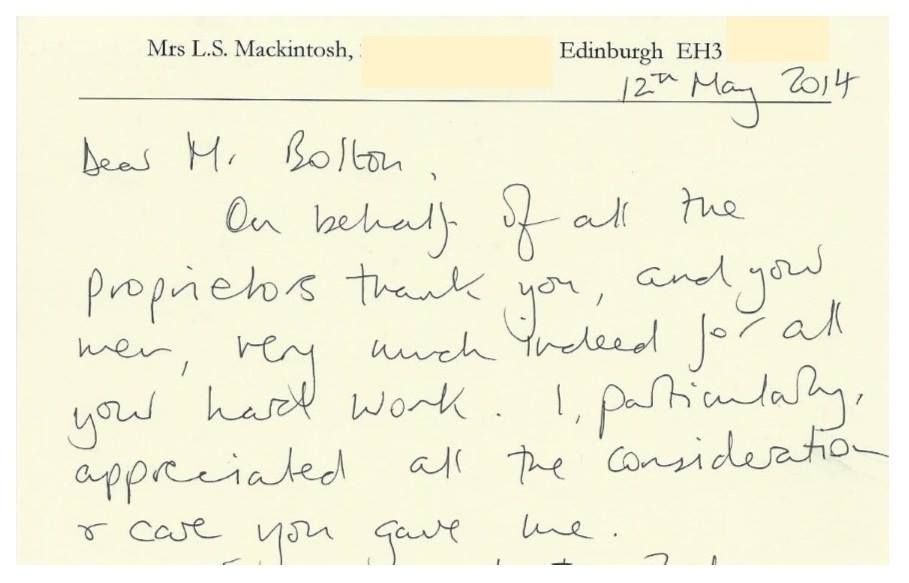 Mrs L.S. Mackintosh, Edinburgh EH3
12th May 2014
Dear Mr Bolton,
On behalf of all the
proprietors thank you, and your
men, very much indeed for all
your hard work. I, particularly,
appreciated all the consideration
& care you gave me.